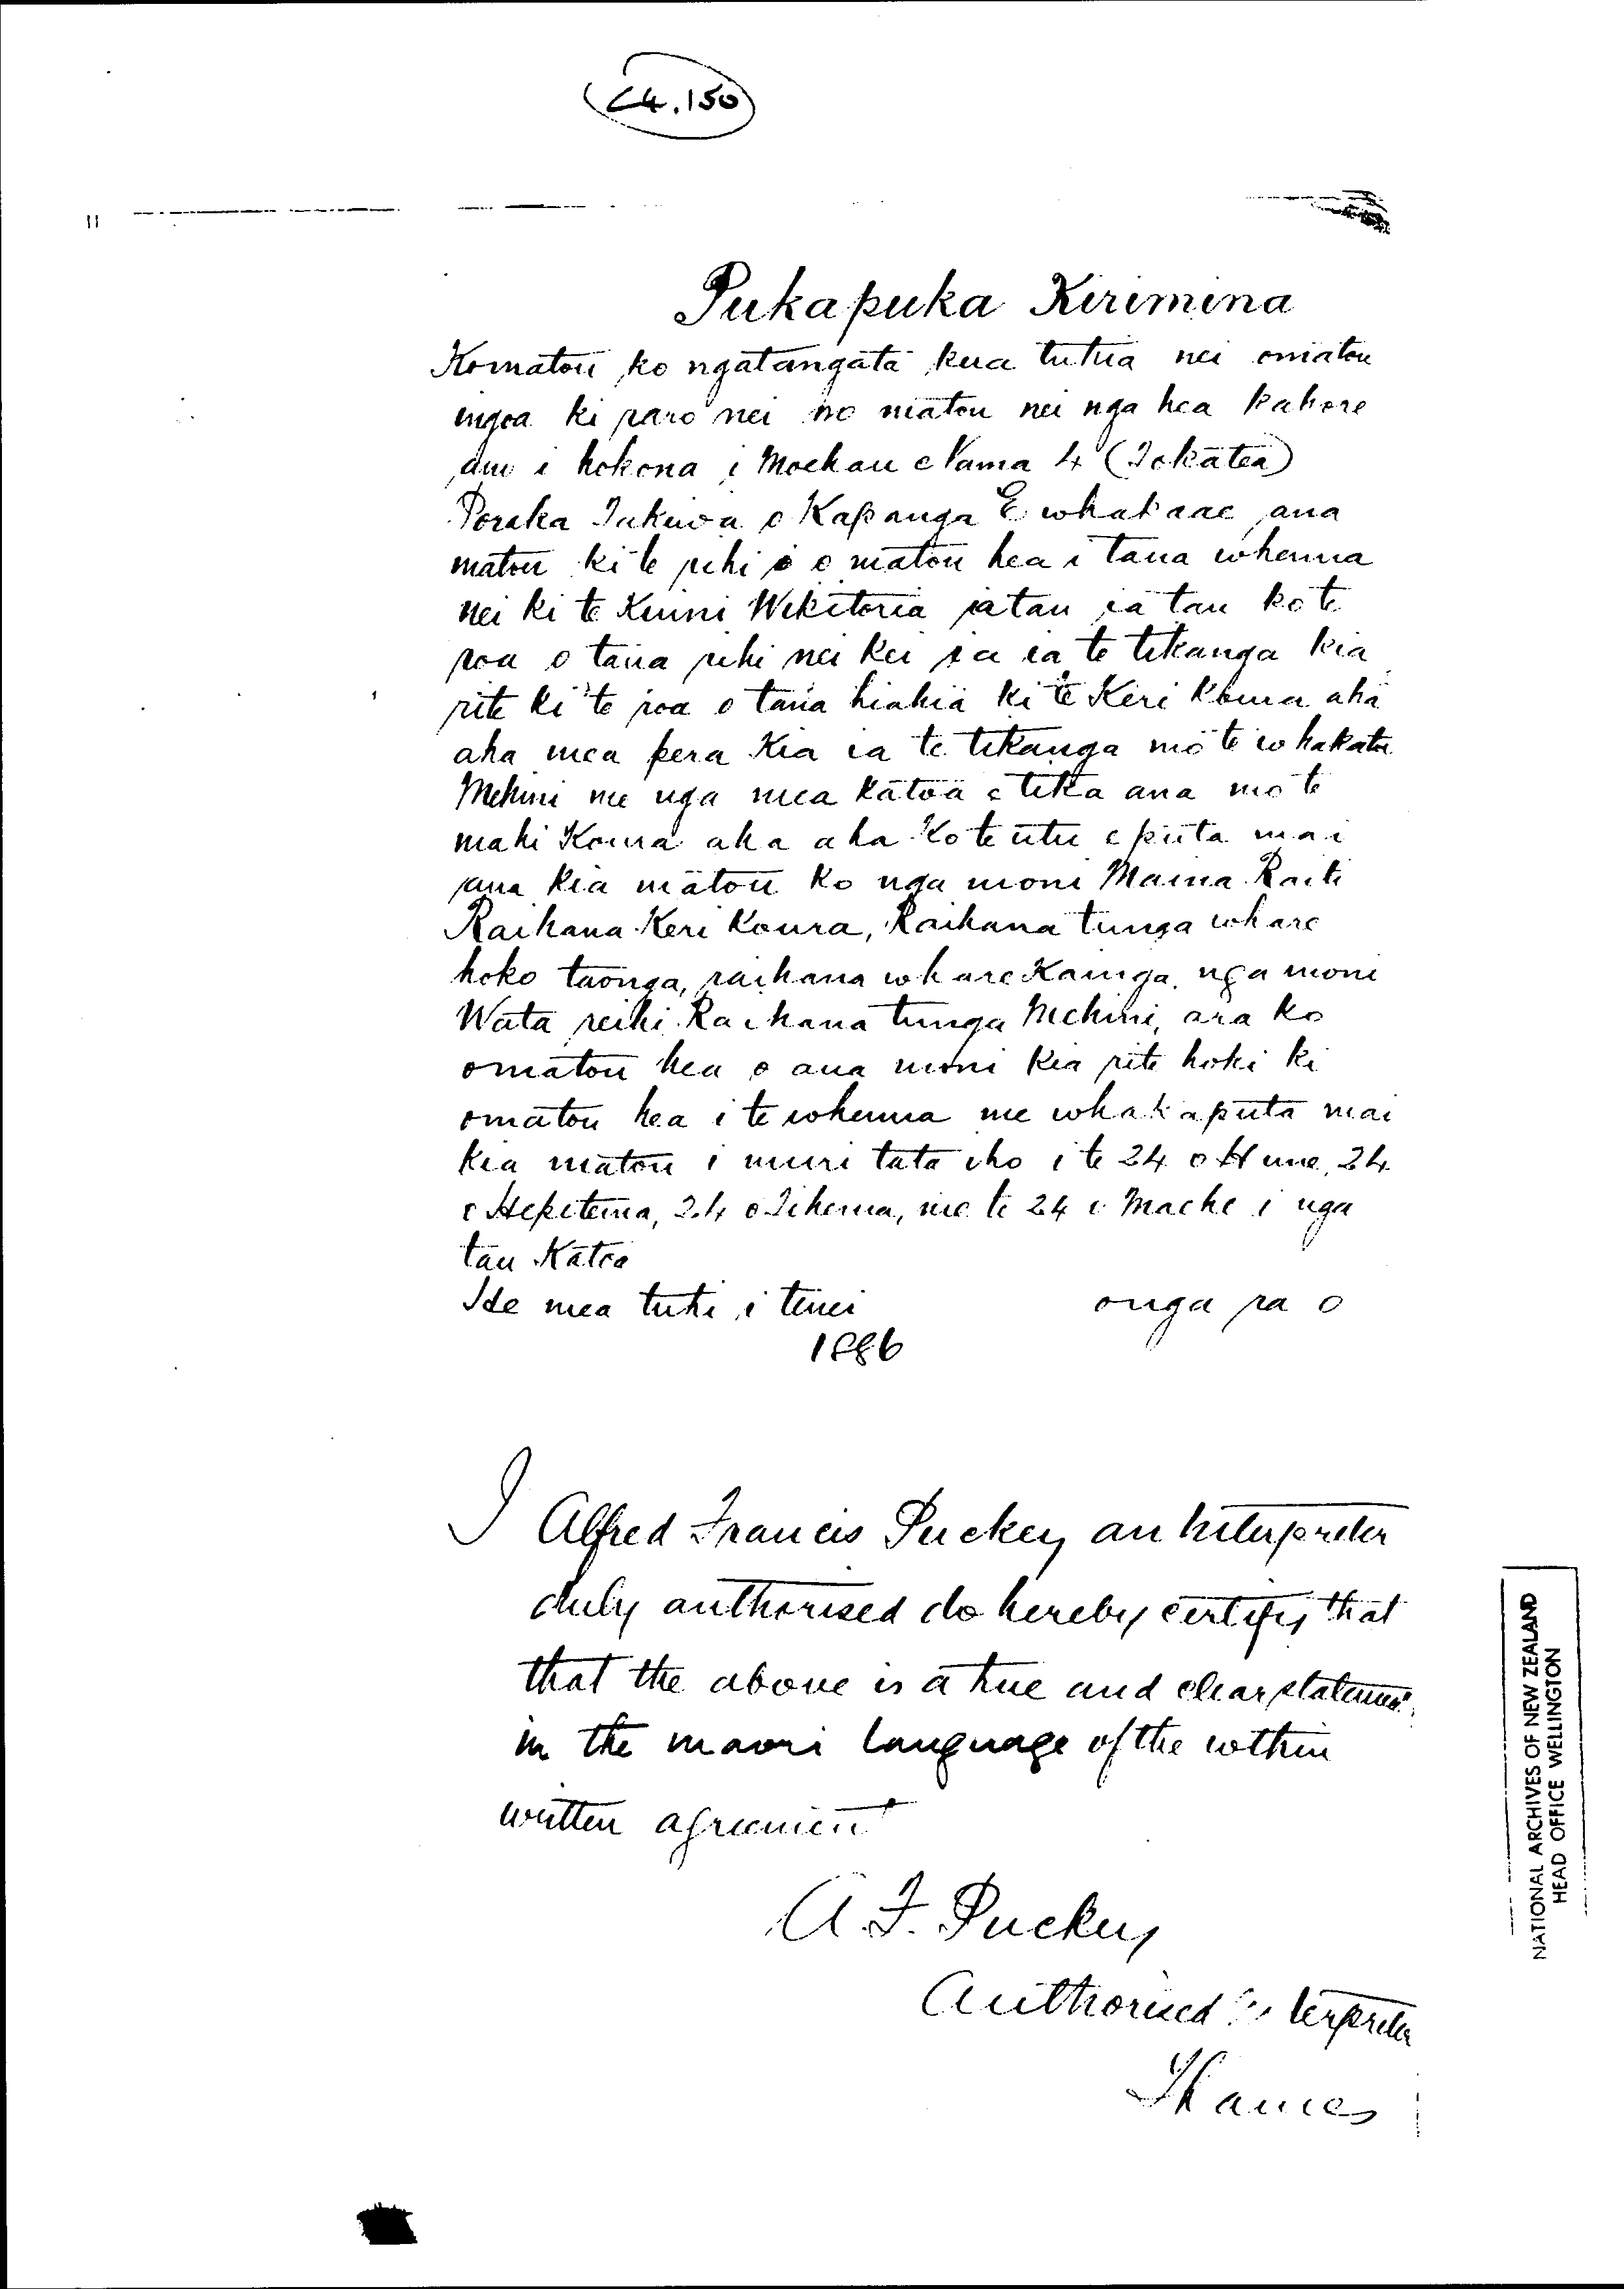 C4.150
Pukapuka Kirimina
Komatou ko ngatangata kua tutua nei omatou
ingoa ki raro nei no matou nei nga hea kahore
anu i hokona i Moehau e Nama 4 (Tokatea)
Poraka Takiwa o Kapanga E whakaae ana
matou ki te rihi i o matou hea i taua whenua
nei ki te Kuini Wikitoria ia tau ia tau ko te
roa o taua rihi nei kei ia ia te tikanga kia
rite ki te roa o tana hiahia ki te Keri Koura aha
aha mea pera Kia ia te tikanga mo te whakatu
Mehini me nga mea katoa e tika ana mo te
mahi Koura aha aha Ko te utu e puta mai
ana kia matou ko nga moni Maina Raiti
Raihana Keri Koura, Raihana tunga whare
hoko taonga, raihana whare Kainga, nga moni
Wata reihi Raihana tunga Mehini, ara ko
omatou hea o aua moni kia rite hoki ki
omatou hea i te whenua me whakaputa mai
kia matou i muri tata iho i te 24 o Hune, 24
o Hepetema, 24 o Tihema, me te 24 o Maehe i nga
tau Katoa
He mea tuhi i tenei onga ra o
1886
I Alfred Francis Puckey an Interpreter
duly authorised do hereby certify that
that the above is a true and clear statement
in the maori language of the within
written agreement
A. F. Puckey
Authorised Interpreter
Thames
NATIONAL ARCHIVES OF NEW ZEALAND
HEAD OFFICE WELLINGTON